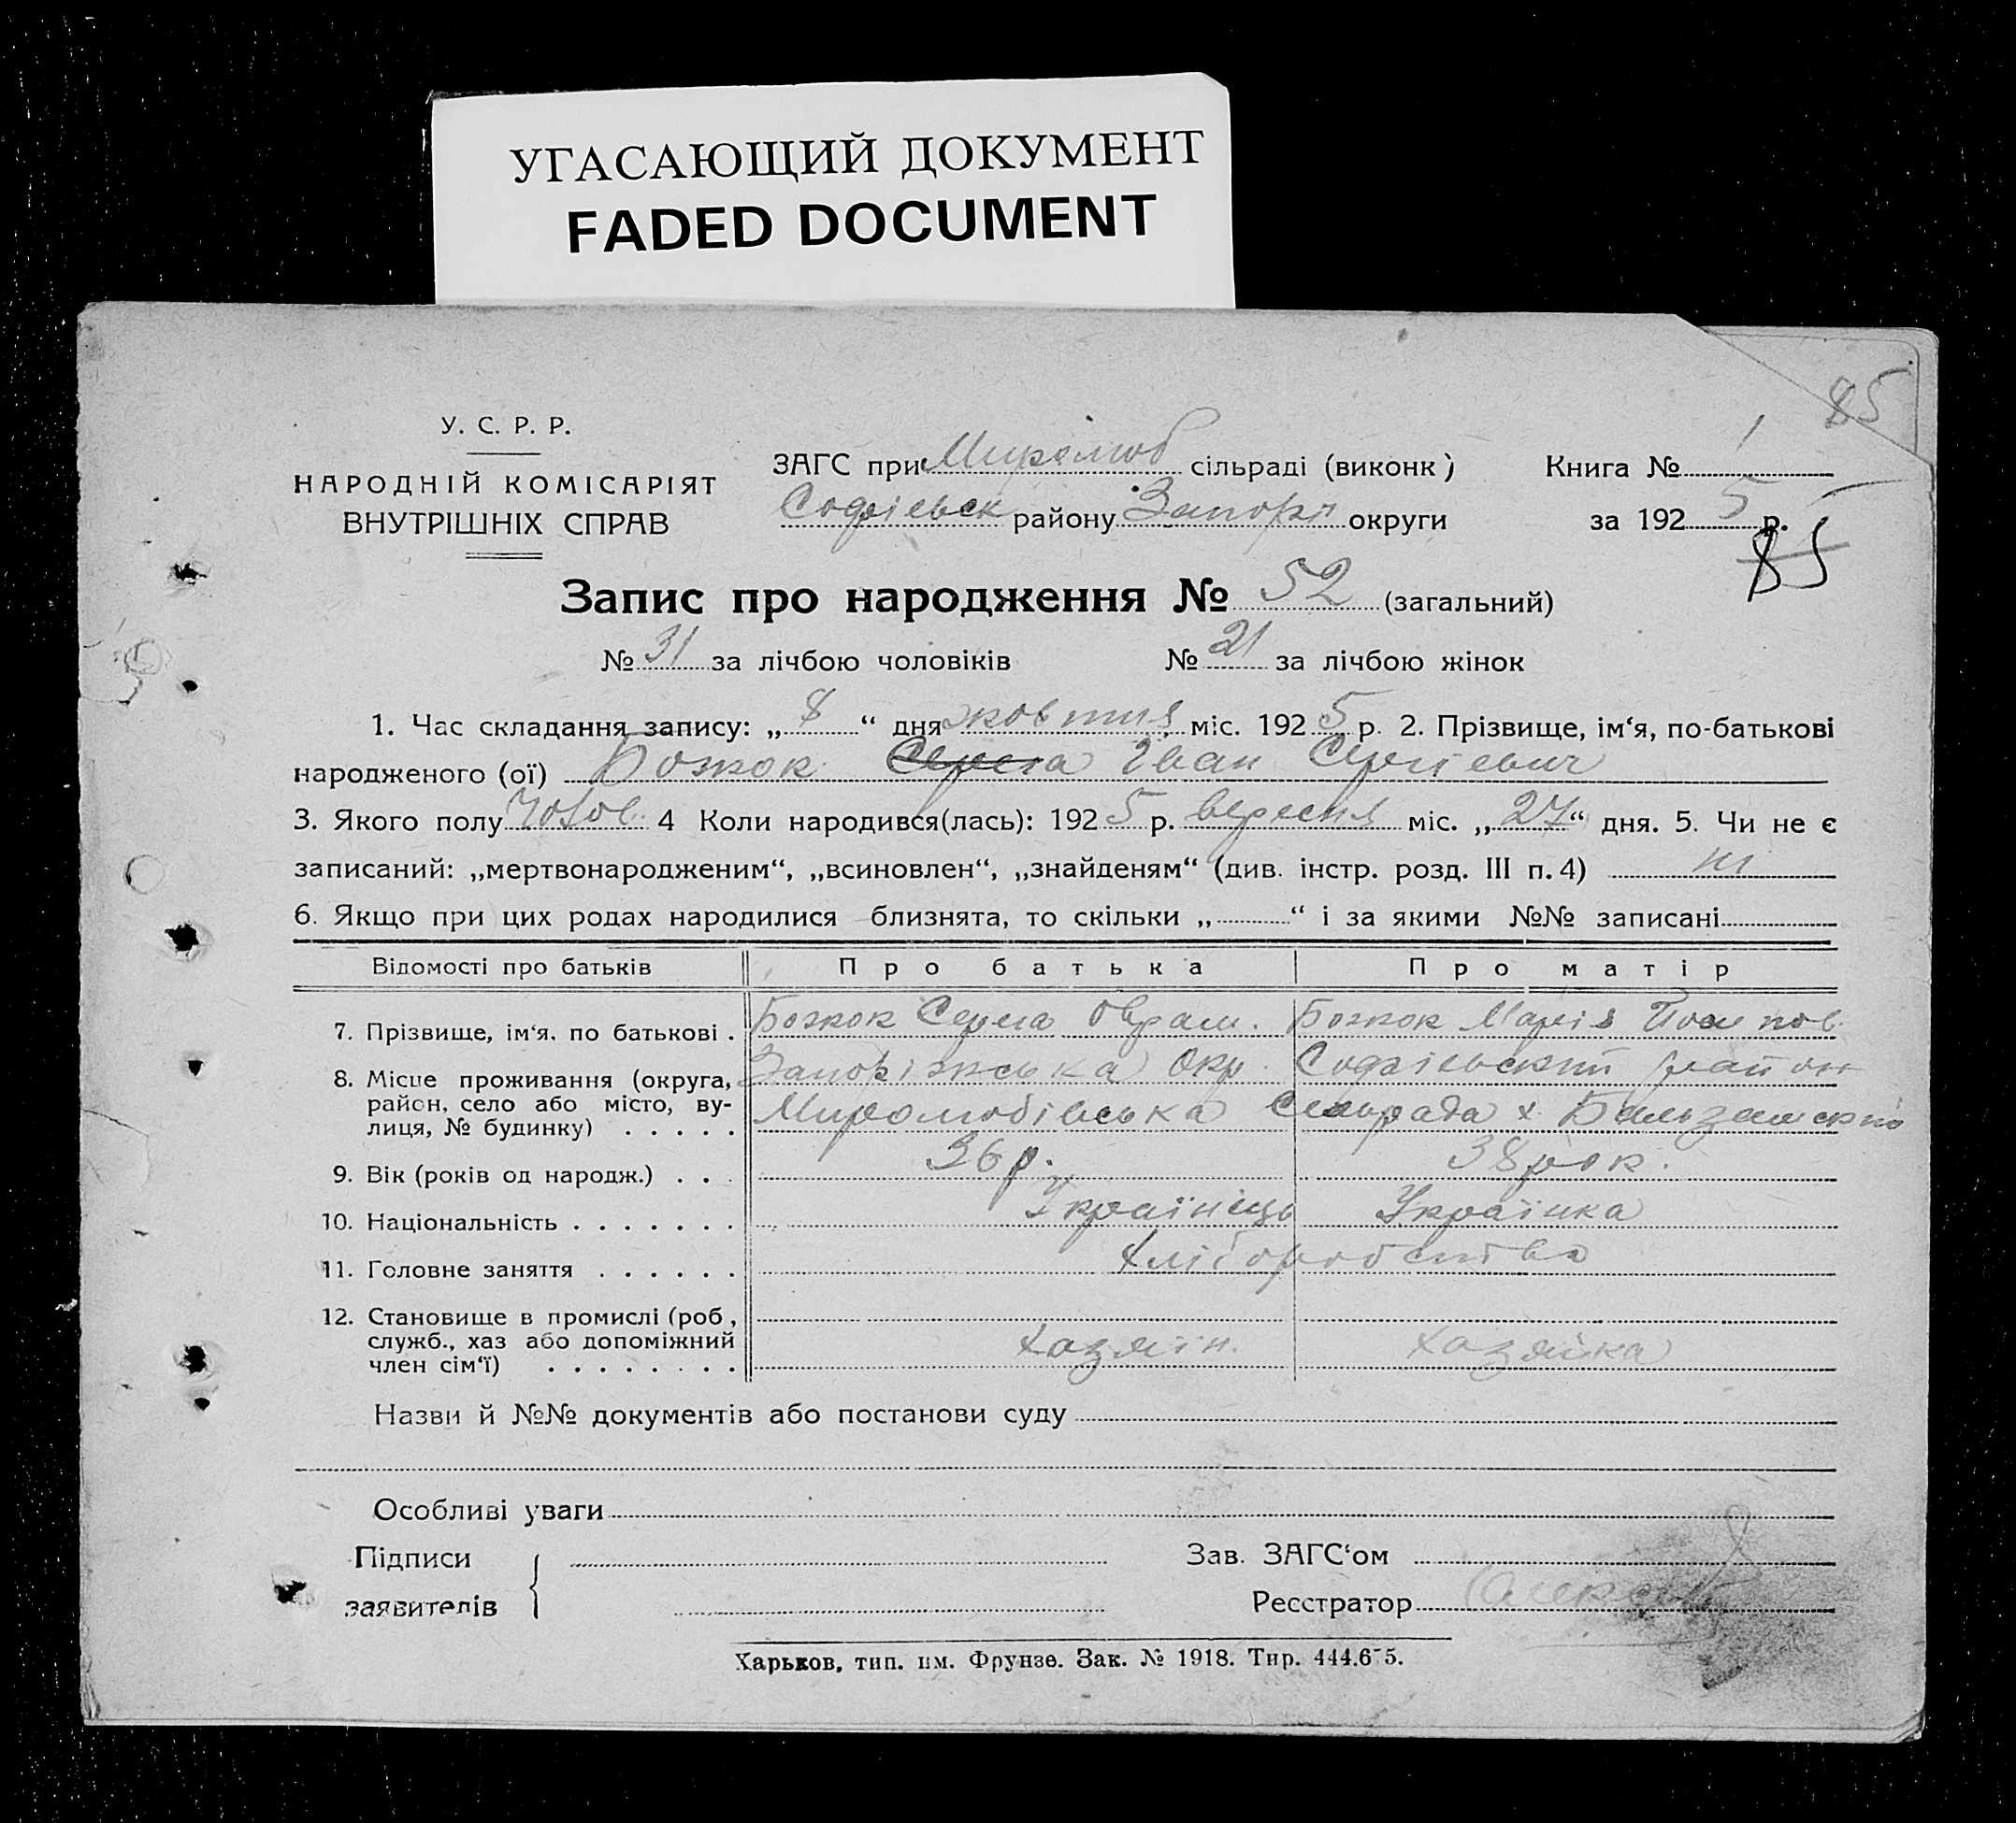 УГАСАЮЩИЙ ДОКУМЕНТ
FADED DOCUMENT
85
У. С. Р. Р.
НАРОДНІЙ КОМІСАРІЯТ
ВНУТРІШНІХ СПРАВ
ЗАГС при Миролюб сільраді (виконк) Книга № 1
Софієвськ району Запоріз округи за 1925 р.
85
Запис про народження № 52 (загальний)
№ 31 за лічбою чоловіків № 21 за лічбою жінок
1. Час складання запису: „ 8 “ дня жовтня міс. 1925 р. 2. Прізвище, ім‘я, по-батькові
народженого (ої) Божок Іван Сергієвич
3. Якого полу чолов. 4 Коли народився(лась): 1925 р. вересня міс. „ 27 “ дня. 5. Чи не є
записаний: „мертвонародженим“, „всиновлен“, „знайденям“ (див. інстр. розд. III п. 4) ні
6. Якщо при цих родах народилися близнята, то скільки „ “ і за якими №№ записані
Відомості про батьків Про батька Про матір
7. Прізвище, ім‘я. по батькові . Божок Серега Оврам. Божок Марія
8. Місце проживання (округа, Запоріжська Окр. Софієвский район
район, село або місто, ву- Миролюбівська Сельрада х.
лиця, № будинку) . . . . .
9. Вік (років од народж.) . . . 36 р. 38 рок.
10. Національність . . . . . . . Українець Українка
11. Головне заняття . . . . . . Хліборобства
12. Становище в промислі (роб,
служб., хаз або допоміжний Хазяїн. Хазяйка
член сім‘ї) . . . . . . . .
Назви й №№ документів або постанови суду
Особливі уваги
Підписи Зав. ЗАГС‘ом
заявителів Реєстратор
Харьков, тип. им. Фрунзе. Зак. № 1918. Тир. 444.6 5.